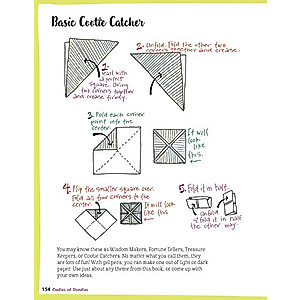 Basic Cootie Catcher
1.
Start with
a perfect
square. Bring two
corners together
and crease firmly.
2. Unfold. Fold the other two
corners together and crease.
3. Fold each corner
point into the
center.
It will
look
like
this.
4. Flip the smaller square over.
Fold all four corners to the
center.
It will
look like
this.
5. Fold it in half.
Unfold
& fold it in half
the other way.
You may know these as Wisdom Makers, Fortune Tellers, Treasure
Keepers, or Cootie Catchers. No matter what you call them, they
are lots of fun! With gel pens, you can make one out of light or dark
paper. Use just about any theme from this book, or come up with
your own ideas.
154 Oodles of Doodles